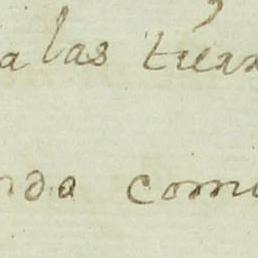 alas tier
nda comi